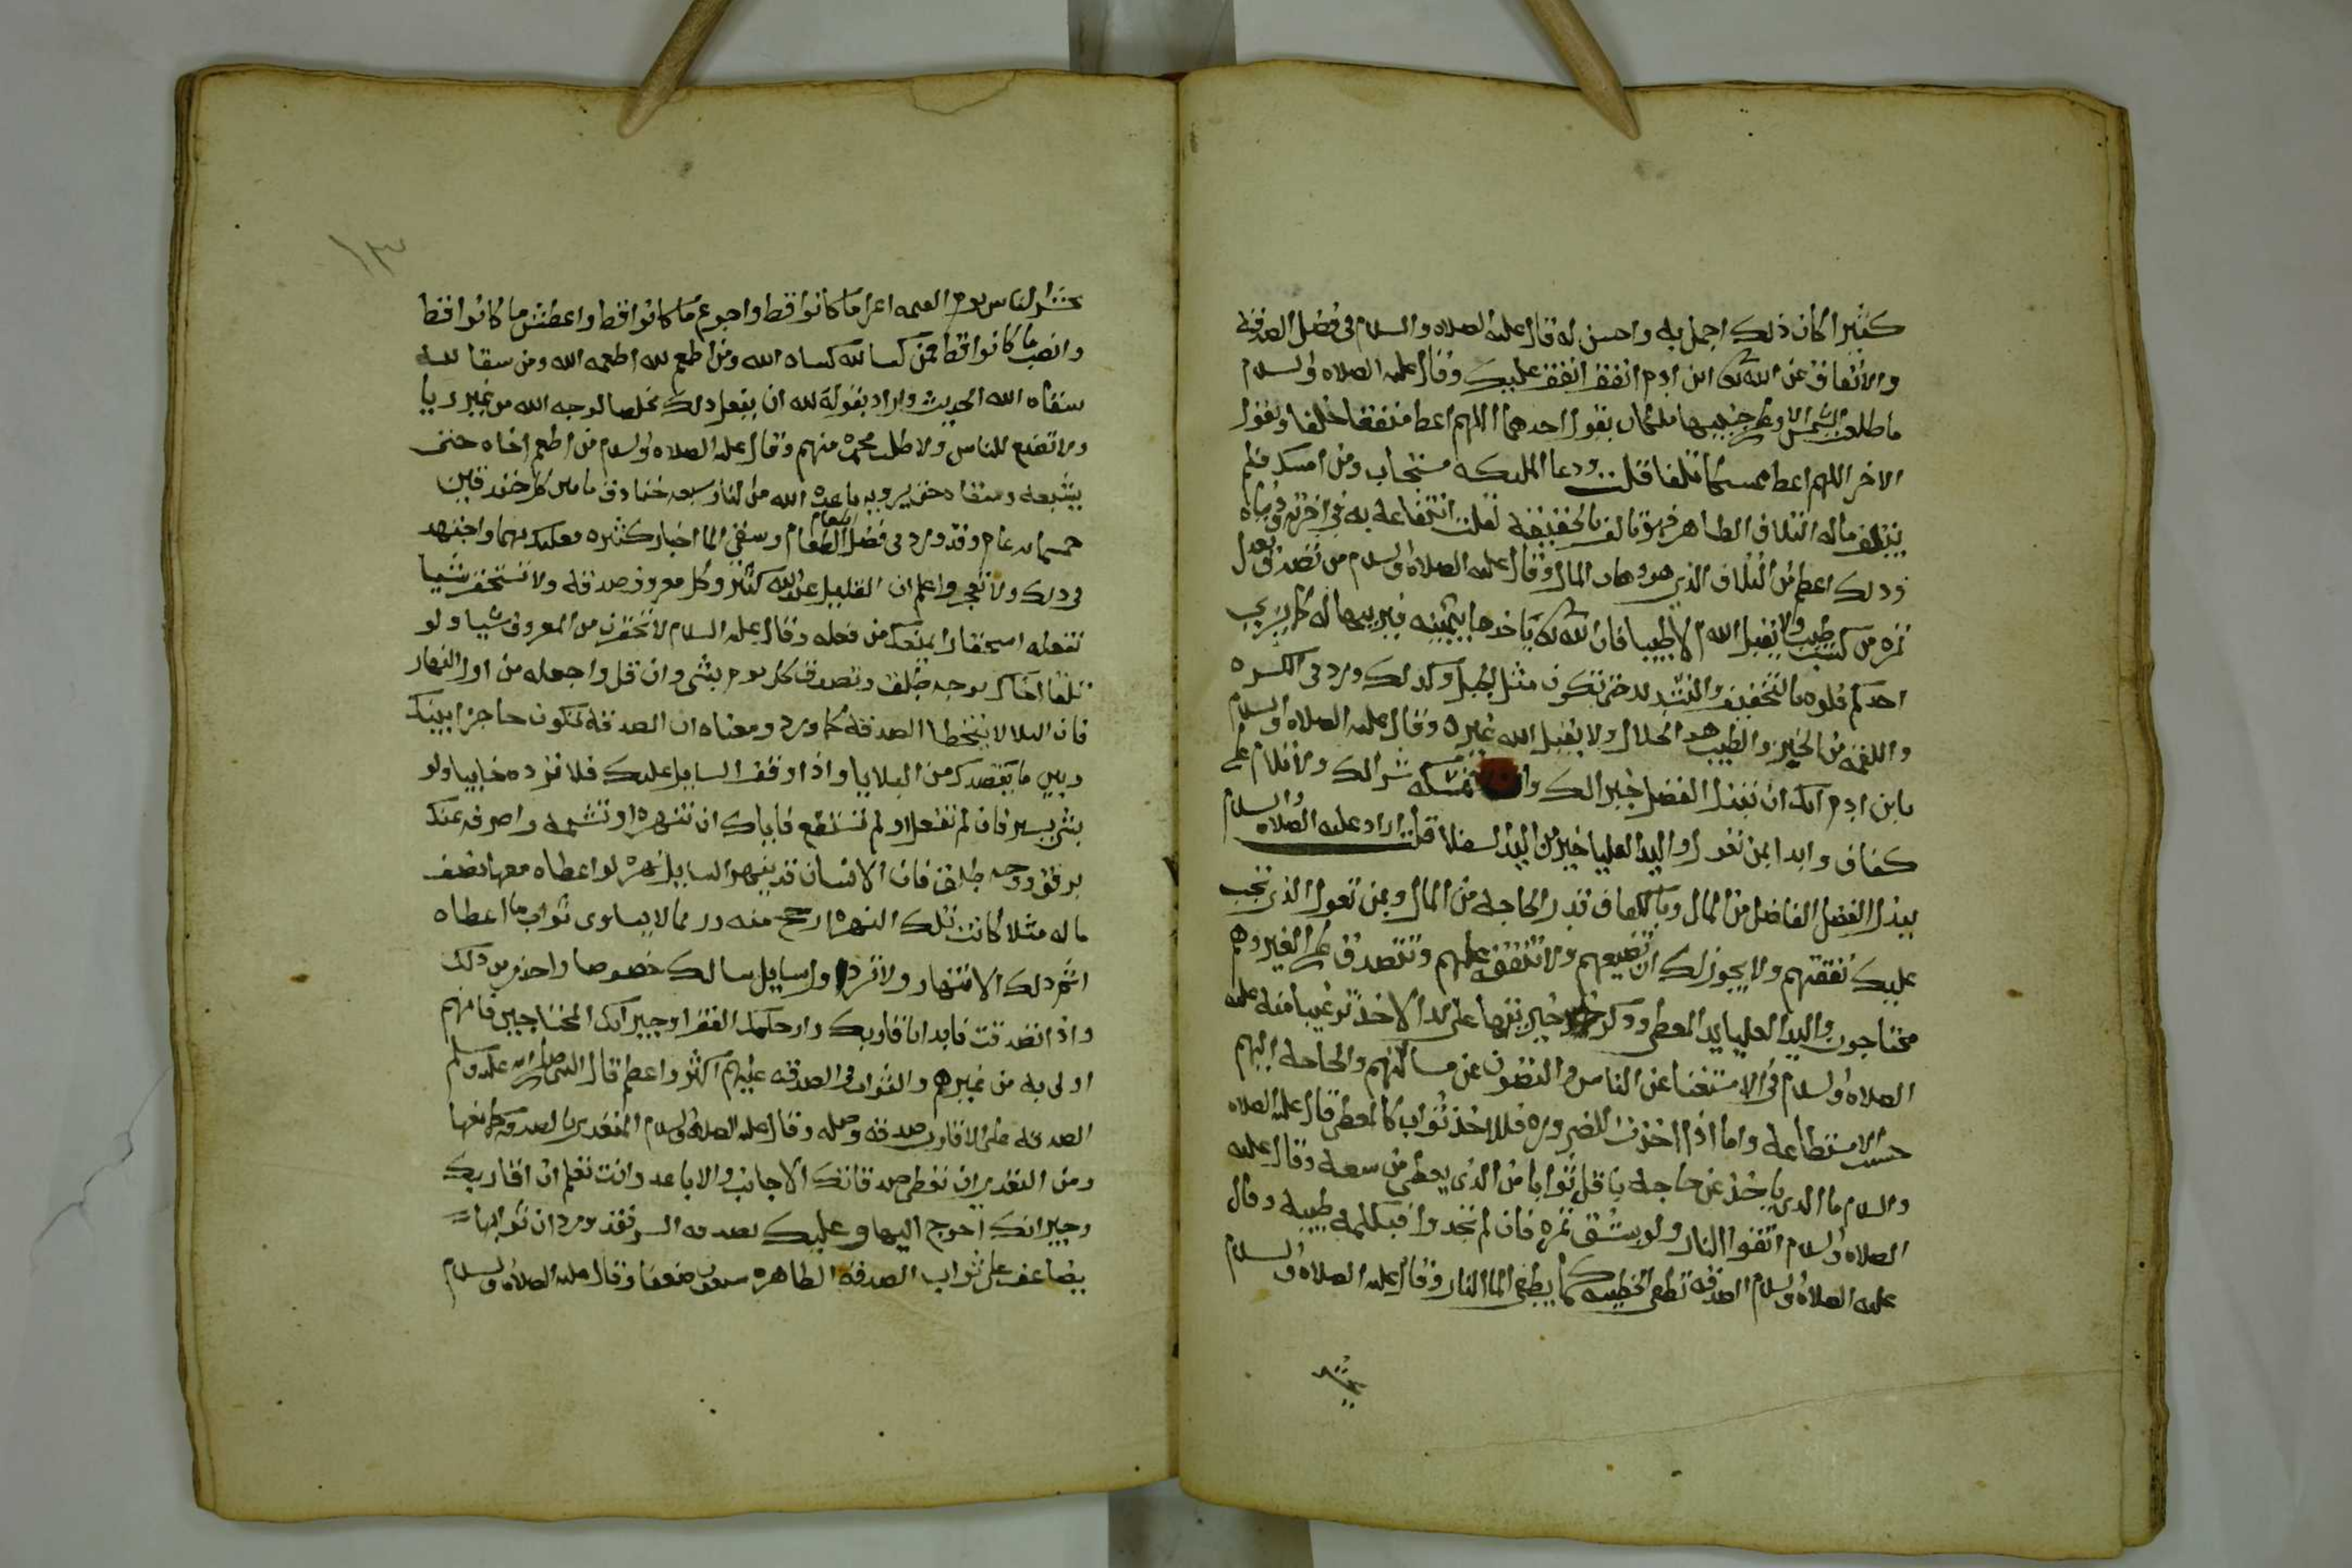 كثيرا كان ذلك اجمل به واحسن له قال عليه الصلاه والسلام في فضل الصدقة
والانفاق عن الله تعالى ابن ادم انفق انفق عليك وقال عليه الصلاه والسلام
ما طلعت الشمس الا وعلى جنبيها ملكان يقول احدهما اللهم اعط منفقا خلفا ويقول
الاخر اللهم اعط ممسكا تلفا قلت ودعا الملكه مستجاب ومن امسك فلم
يتلف ماله التلاف الظاهر فهو تالف بالحقيقة لقلت انتفاعه به في اخرته ودنياه
وذلك اعظم من التلاف الذي هو دهاب المال وقال عليه الصلاة والسلام من تصدق بعدل
تمره من كسب طيب ولا يقبل الله الا طيبا فان الله تعالى ياخدها بيمينه فيربيها له كما يربي
احدكم فلوه بالتخفيف والتشديد حتى تكون مثل الجبل وكذلك ورد في الكسره
واللقمة من الخبز والطيب هو الحلال ولا يقبل الله غيره وقال عليه الصلاه والسلام
يابن ادم انك ان تبذل الفضل خير لك وان تمسكه شر لك ولا تلام على
كفاف وابدا بمن تعول واليد العليا خير من اليد السفلا قلت اراد عليه الصلاة والسلام
ببذل الفضل الفاضل من المال وبالكفاف قدر الحاجه من المال وبمن تعول الذي تجب
عليك نفقتهم ولا يجوز لك ان تضيعهم ولا تنفق عليهم وتتصدق على الغير وهم
محتاجون واليد العليا يد المعطي وذكر خيريتها على يد الاخذ ترغيبا منه عليه
الصلاه والسلام في الاستغنا عن الناس والتصون عن مسالتهم والحاجه اليهم
حسب الاستطاعه واما اذا اخذت للضروره فللاخذ ثواب كالمعطي قال عليه الصلاه
والسلام ما الذي ياخذ عن حاجه باقل ثوابا من الذي يعطي من سعه وقال عليه
الصلاه والسلام اتقوا النار ولو بشق تمره فان لم تجدوا فبكلمه طيبه وقال
عليه الصلاة والسلام الصدقه تطفي الخطيئه كما يطفي الما النار وقال عليه الصلاة والسلام
يحشر
١٣
يحشر الناس يوم القيمه اعرا ما كانوا قط واجوع ما كانوا قط واعطش ما كانوا قط
وانصب ما كانوا قط فمن كسا لله كساه الله ومن اطعم لله اطعمه الله ومن سقا لله
سقاه الله الحديث واراد بقوله لله ان يفعل ذلك مخلصا لوجه الله من غير ريا
ولا تصنع للناس ولا طلب محمده منهم وقال عليه الصلاه والسلام من اطعم اخاه حتى
يشبعه وسقاه حتى يرويه باعده الله من النار سبعه خنادق ما بين كل خندقين
خمسمايه عام وقد ورد في فضل اطعام الطعام وسقي الما اخبار كثيره فعليك بهما واجتهد
في ذلك ولا تعجز واعلم ان القليل عند الله كثير وكل معروف صدقه ولا تستحقر شيا
تفعله استحقارا يمنعك من فعله وقال عليه السلام لا تحقرن من المعروف شيا ولو
تلقا اخاك بوجه طلق وتصدق كل يوم بشي وان قل واجعله من اول النهار
فان البلا لا يتخطا الصدقة كما ورد ومعناه ان الصدقه تكون حاجزا بينك
وبين ما يقصدك من البلايا واذا وقف السايل عليك فلا ترده خايبا ولو
بشي يسير فان لم تفعل او لم تستطع فاياك ان تنهره او تشتمه واصرفه عنك
برفق ووجه طلق فان الانسان قد ينهر السايل نهره لو اعطاه معها نصف
ماله مثلا كانت تلك النهره ارجح منه وربما لا يساوي ثواب ما اعطاه
اثم ذلك الانتهار ولا ترد اول سايل سالك خصوصا واحذر من ذلك
واذا تصدقت فابدا باقاربك وارحامك الفقرا وجيرانك المحتاجين فانهم
اولى به من غيرهم والثواب في الصدقه عليهم اكثر واعظم قال النبي صلى الله عليه وسلم
الصدقه على الاقارب صدقه وصله وقال عليه الصلاة والسلام المتعدي بالصدقه كمانعها
ومن التعدي ان تعطي صدقاتك الاجانب والاباعد وانت تعلم ان اقاربك
وجيرانك احوج اليها وعليك بصدقه السر فقد ورد ان ثوابها
يضاعف على ثواب الصدقه الظاهره سبعين ضعفا وقال عليه الصلاة والسلام